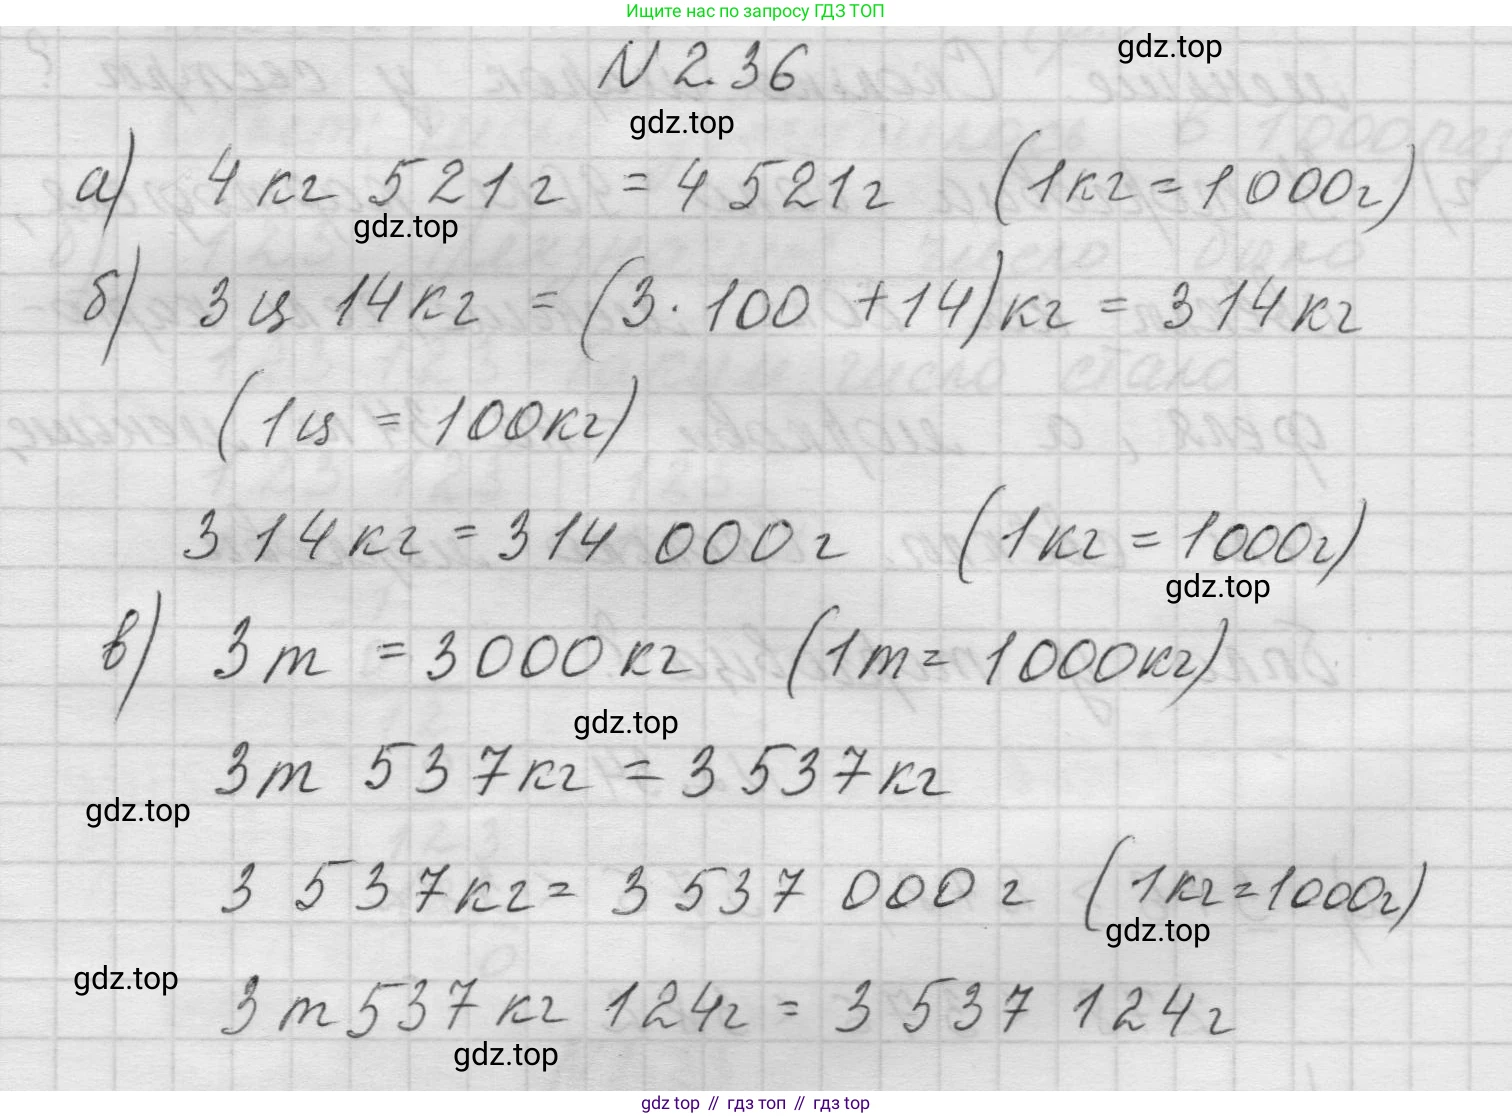 Ищите нас по запросу ГДЗ ТОП
gdz.top
N 2.36
gdz.top
а) 4 кг 521 г = 4 521 г (1 кг = 1 000 г)
gdz.top
б) 3 ц 14 кг = (3 · 100 + 14) кг = 314 кг
(1 ц = 100 кг)
314 кг = 314 000 г (1 кг = 1000 г)
gdz.top
в) 3 т = 3 000 кг (1 т = 1 000 кг)
gdz.top
3 т 537 кг = 3 537 кг
gdz.top
3 537 кг = 3 537 000 г (1 кг = 1000 г)
gdz.top
gdz.top
3 т 537 кг 124 г = 3 537 124 г
gdz.top
gdz top // гдз топ // гдз top